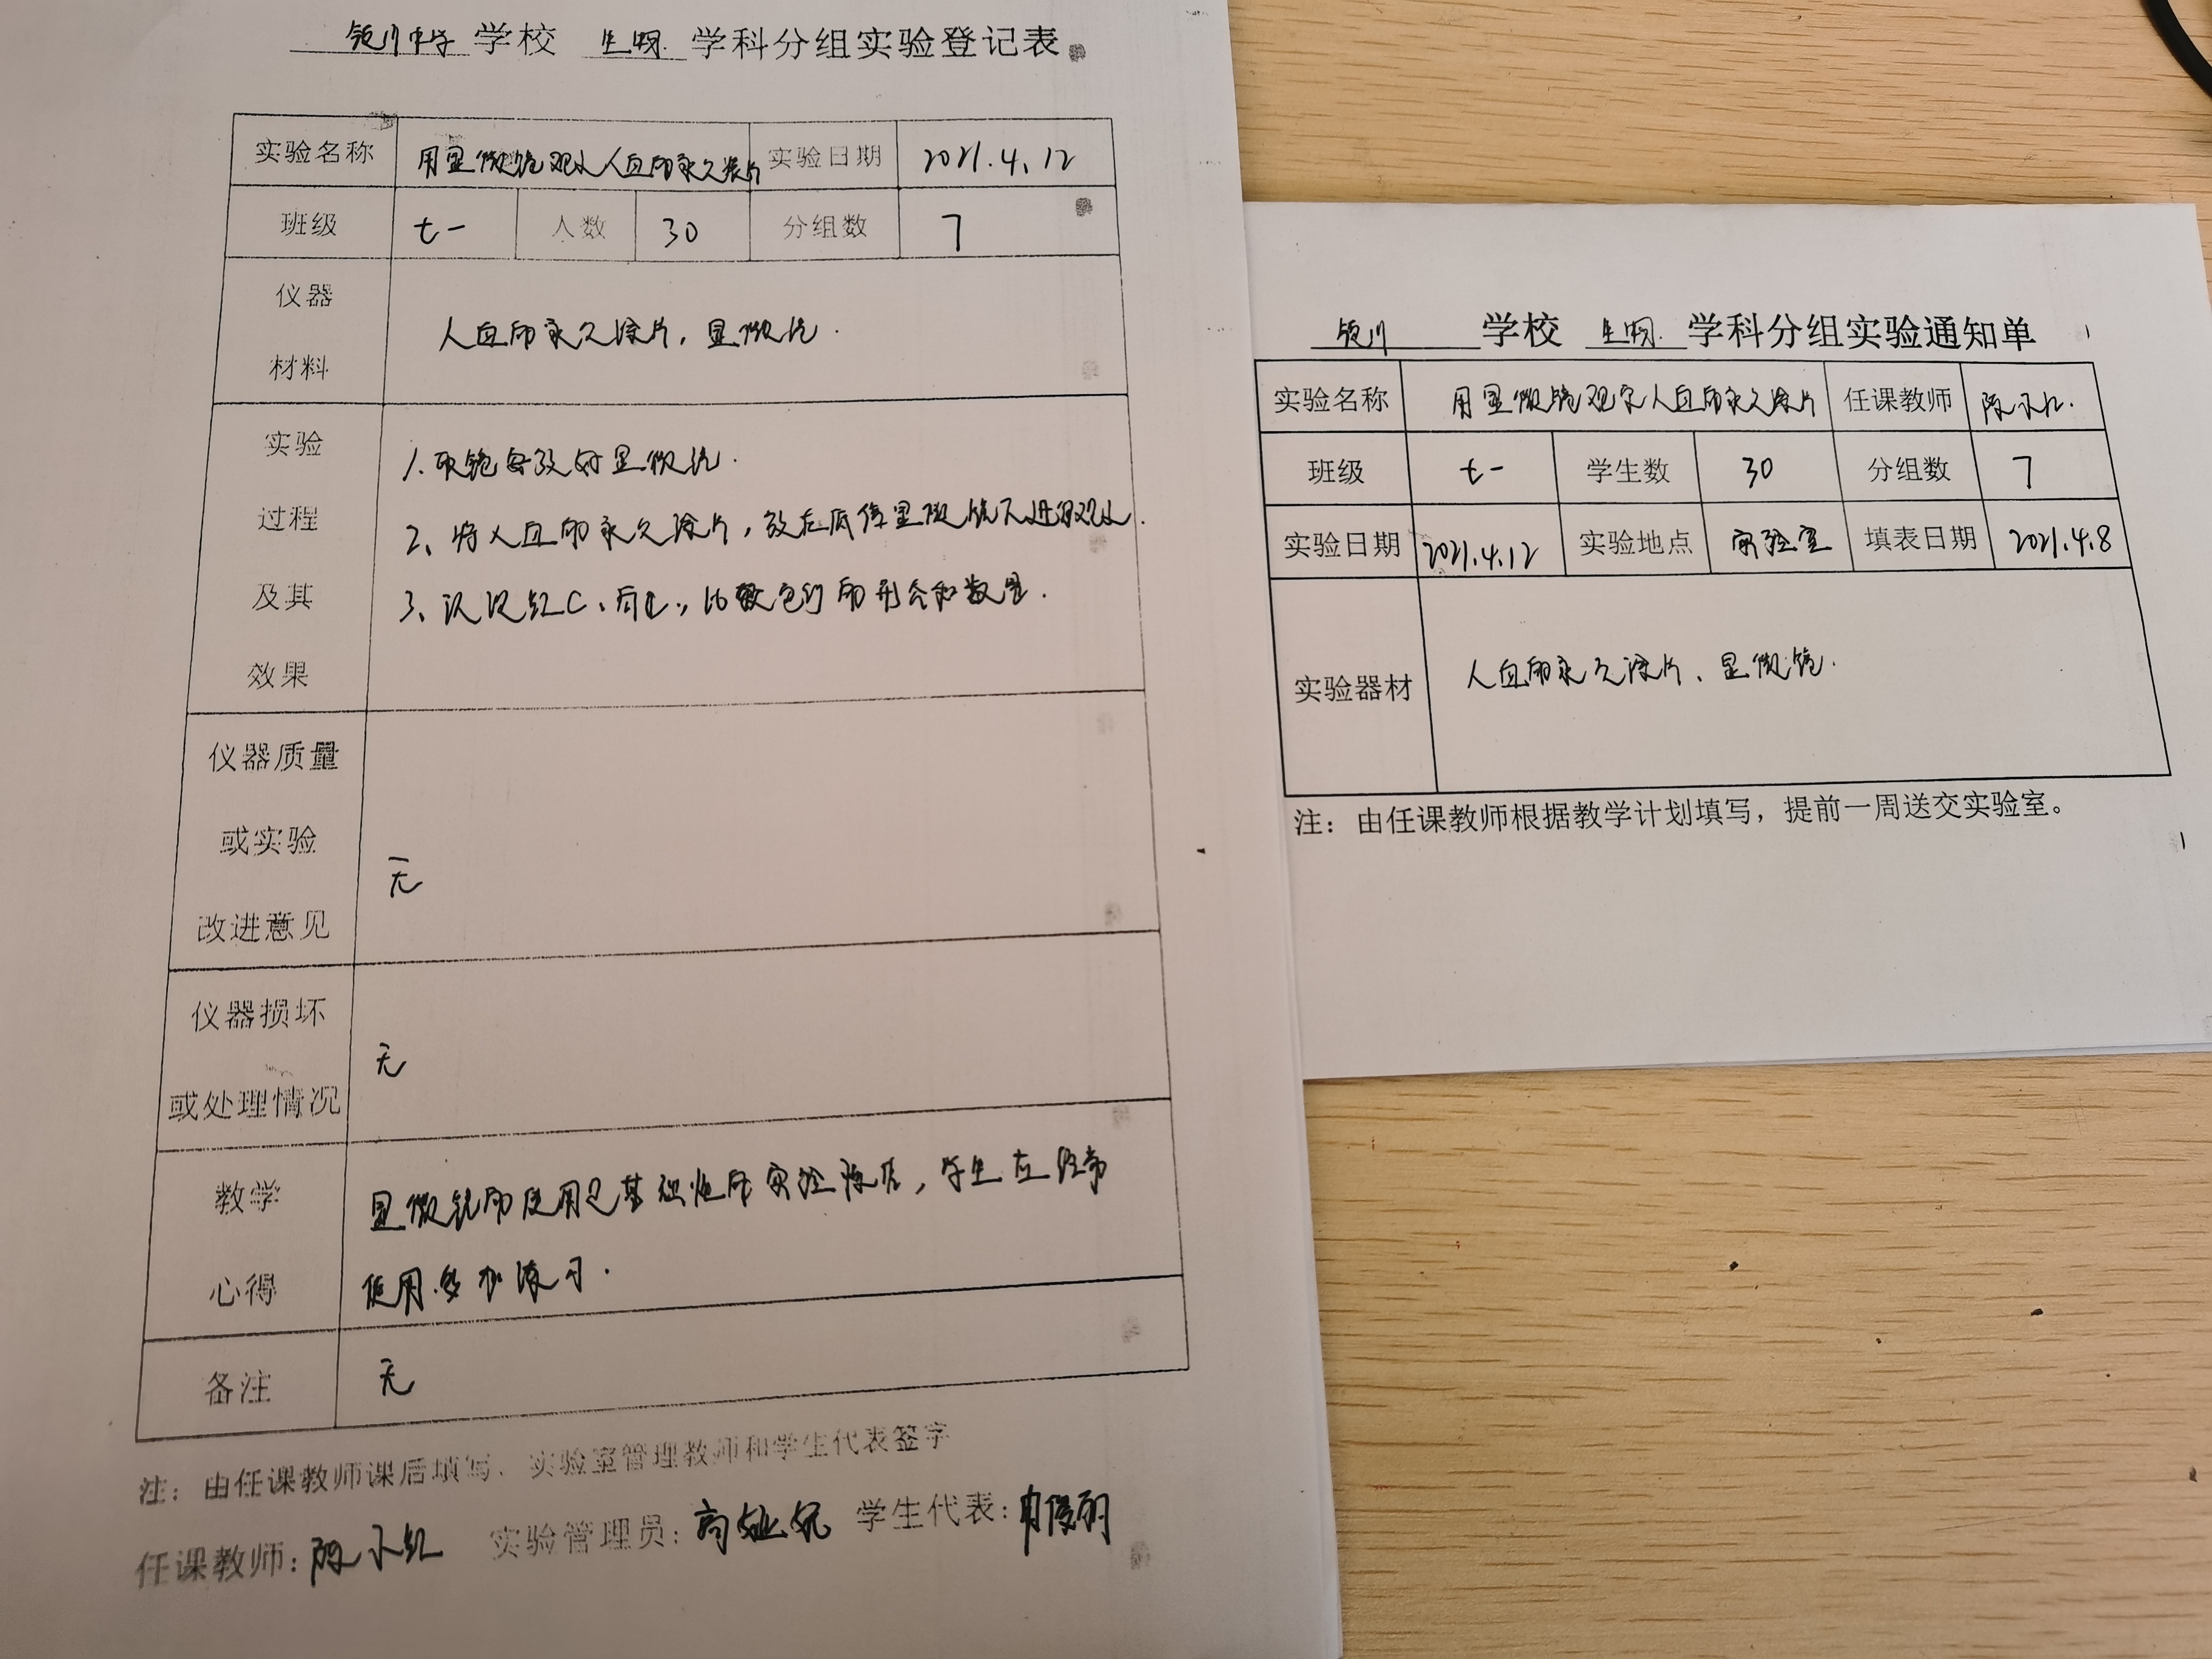 银川中学 学校 生物 学科分组实验登记表
实验名称 用显微镜观察人血的永久涂片 实验日期 2021.4.12
班级 七一 人数 30 分组数 7
仪器
材料
人血的永久涂片，显微镜.
实验
过程
及其
效果
1.取镜安放好显微镜.
2、将人血的永久涂片，放在低倍显微镜下进行观察.
3、认识红C、白C，比较它们的形态和数量.
仪器质量
或实验
改进意见
无
仪器损坏
或处理情况
无
教学
心得
显微镜的使用是基础性的实验，学生应经常
使用.多加练习.
备注 无
注：由任课教师课后填写、实验室管理教师和学生代表签字
任课教师：陈小红 实验管理员： 学生代表：
银川 学校 生物 学科分组实验通知单
实验名称 用显微镜观察人血的永久涂片 任课教师 陈小红.
班级 七一 学生数 30 分组数 7
实验日期 2021.4.12 实验地点 实验室 填表日期 2021.4.8
实验器材 人血的永久涂片、显微镜.
注：由任课教师根据教学计划填写，提前一周送交实验室。